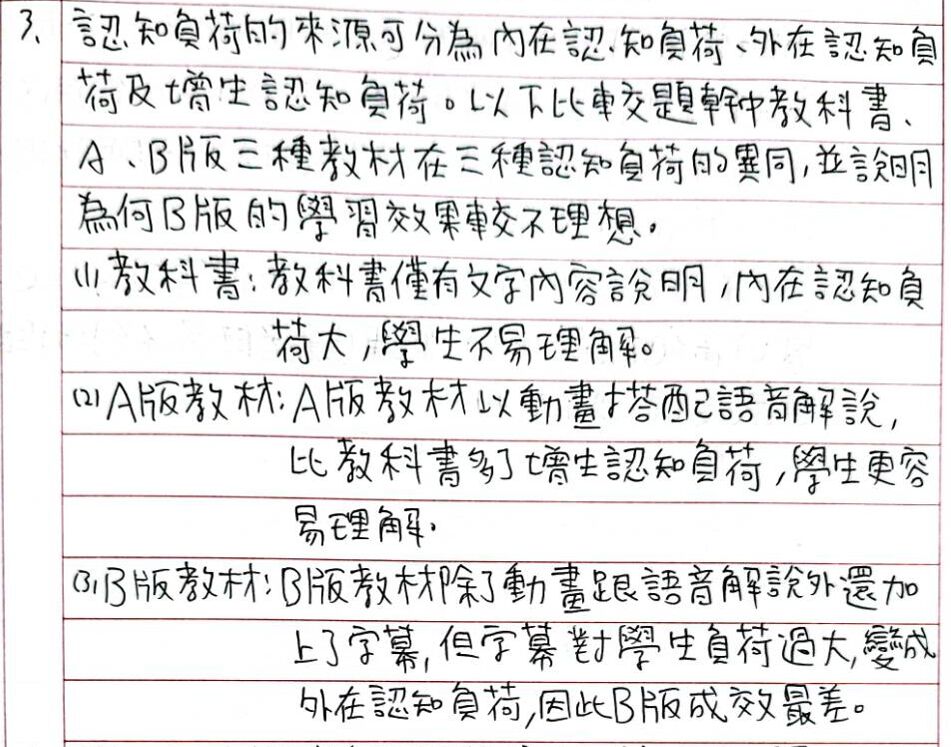 3、認知負荷的來源可分為內在認知負荷、外在認知負
荷及增生認知負荷。以下比較題幹中教科書、
A、B版三種教材在三種認知負荷的異同,並說明
為何B版的學習效果較不理想。
(1)教科書:教科書僅有文字內容說明,內在認知負
荷大,學生不易理解。
(2)A版教材:A版教材以動畫搭配語音解說,
比教科書多了增生認知負荷,學生更容
易理解。
(3)B版教材:B版教材除了動畫跟語音解說外還加
上了字幕,但字幕對學生負荷過大,變成
外在認知負荷,因此B版成效最差。